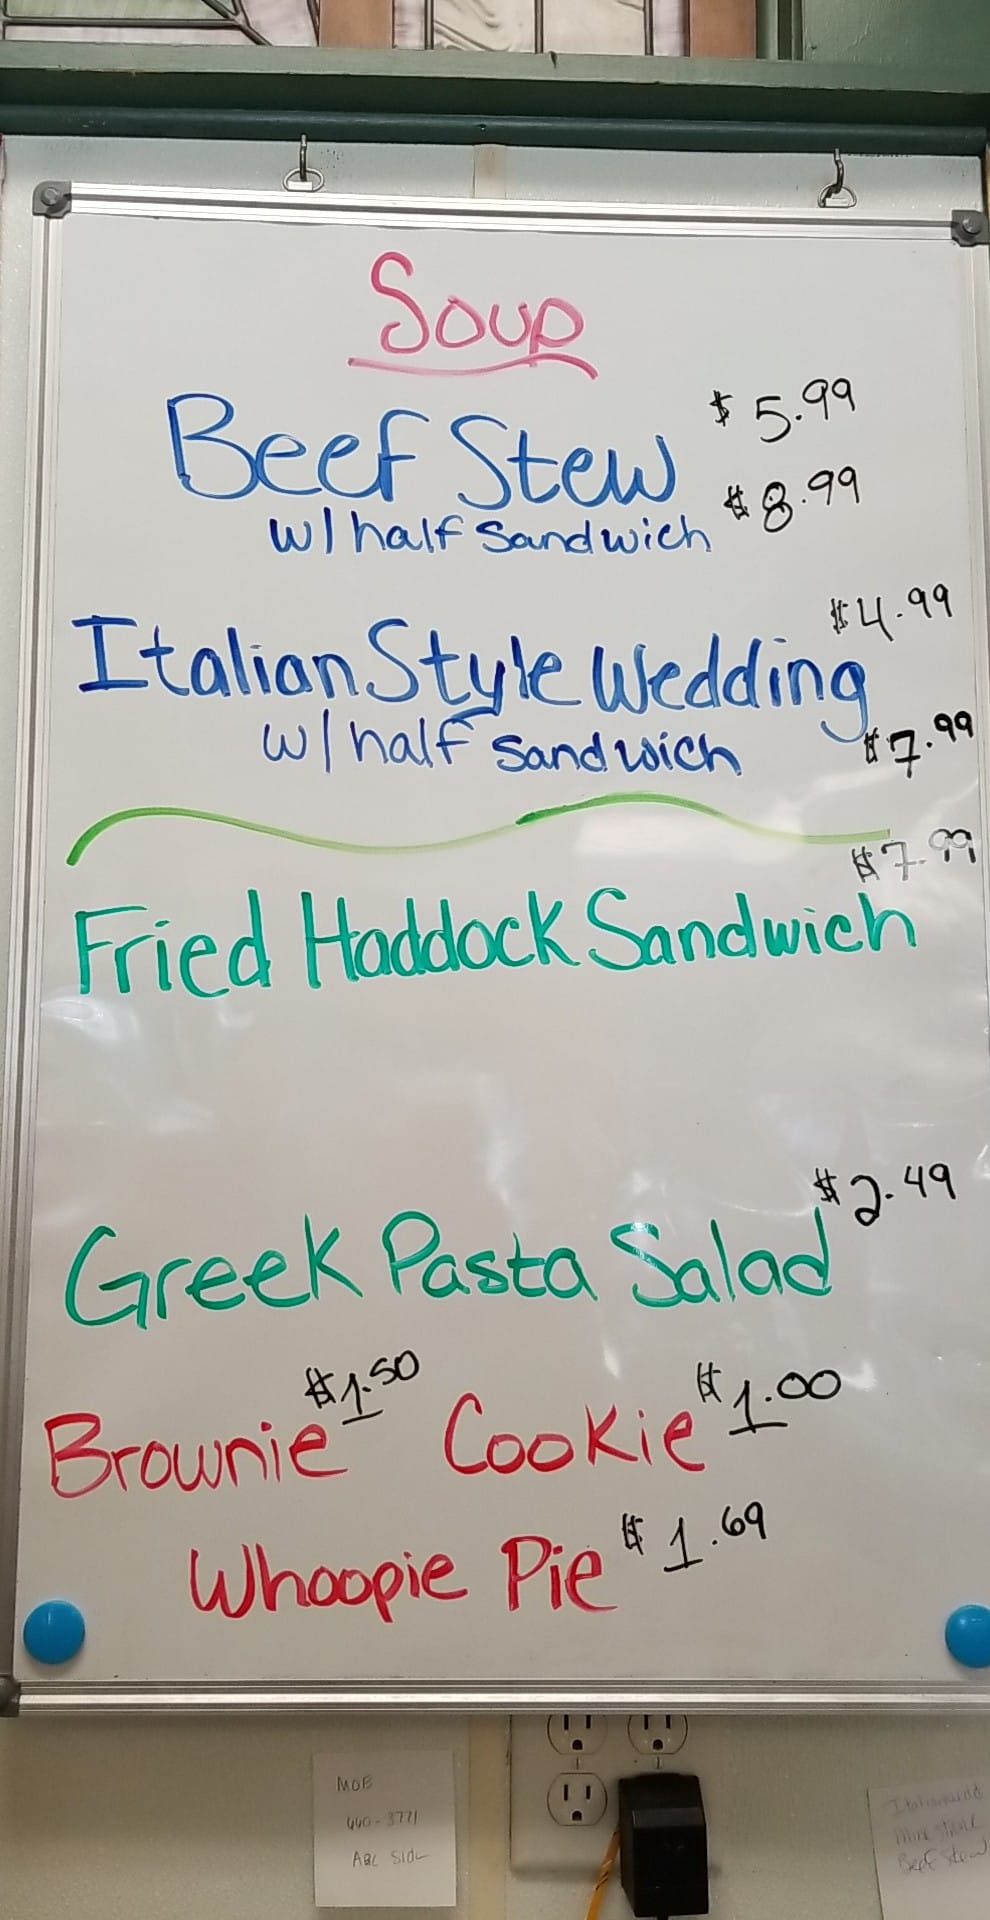 Soup
Beef Stew $5.99
w/ half sandwich $8.99
Italian Style Wedding $4.99
w/ half sandwich $7.99
Fried Haddock Sandwich $7.99
Greek Pasta Salad $2.49
Brownie $1.50 Cookie $1.00
Whoopie Pie $1.69
MOE
440-3771
ABC Side
Beef Stew